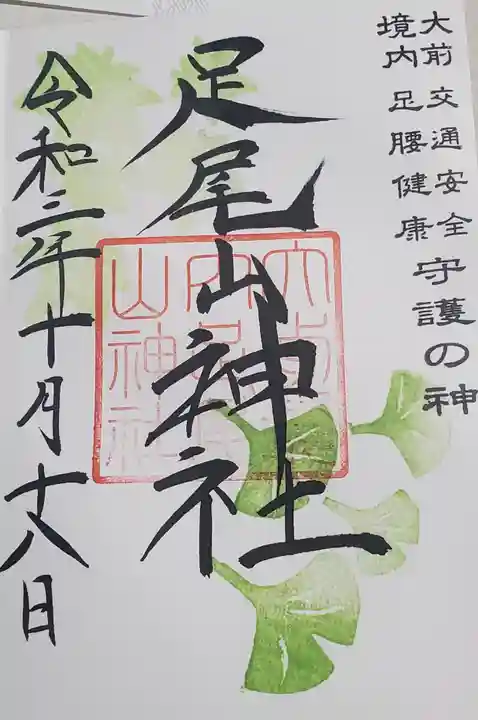 大前 交通安全
境内 足腰健康
守護の神
足尾山神社
大前境
内足尾
山神社
令和三年十月十八日